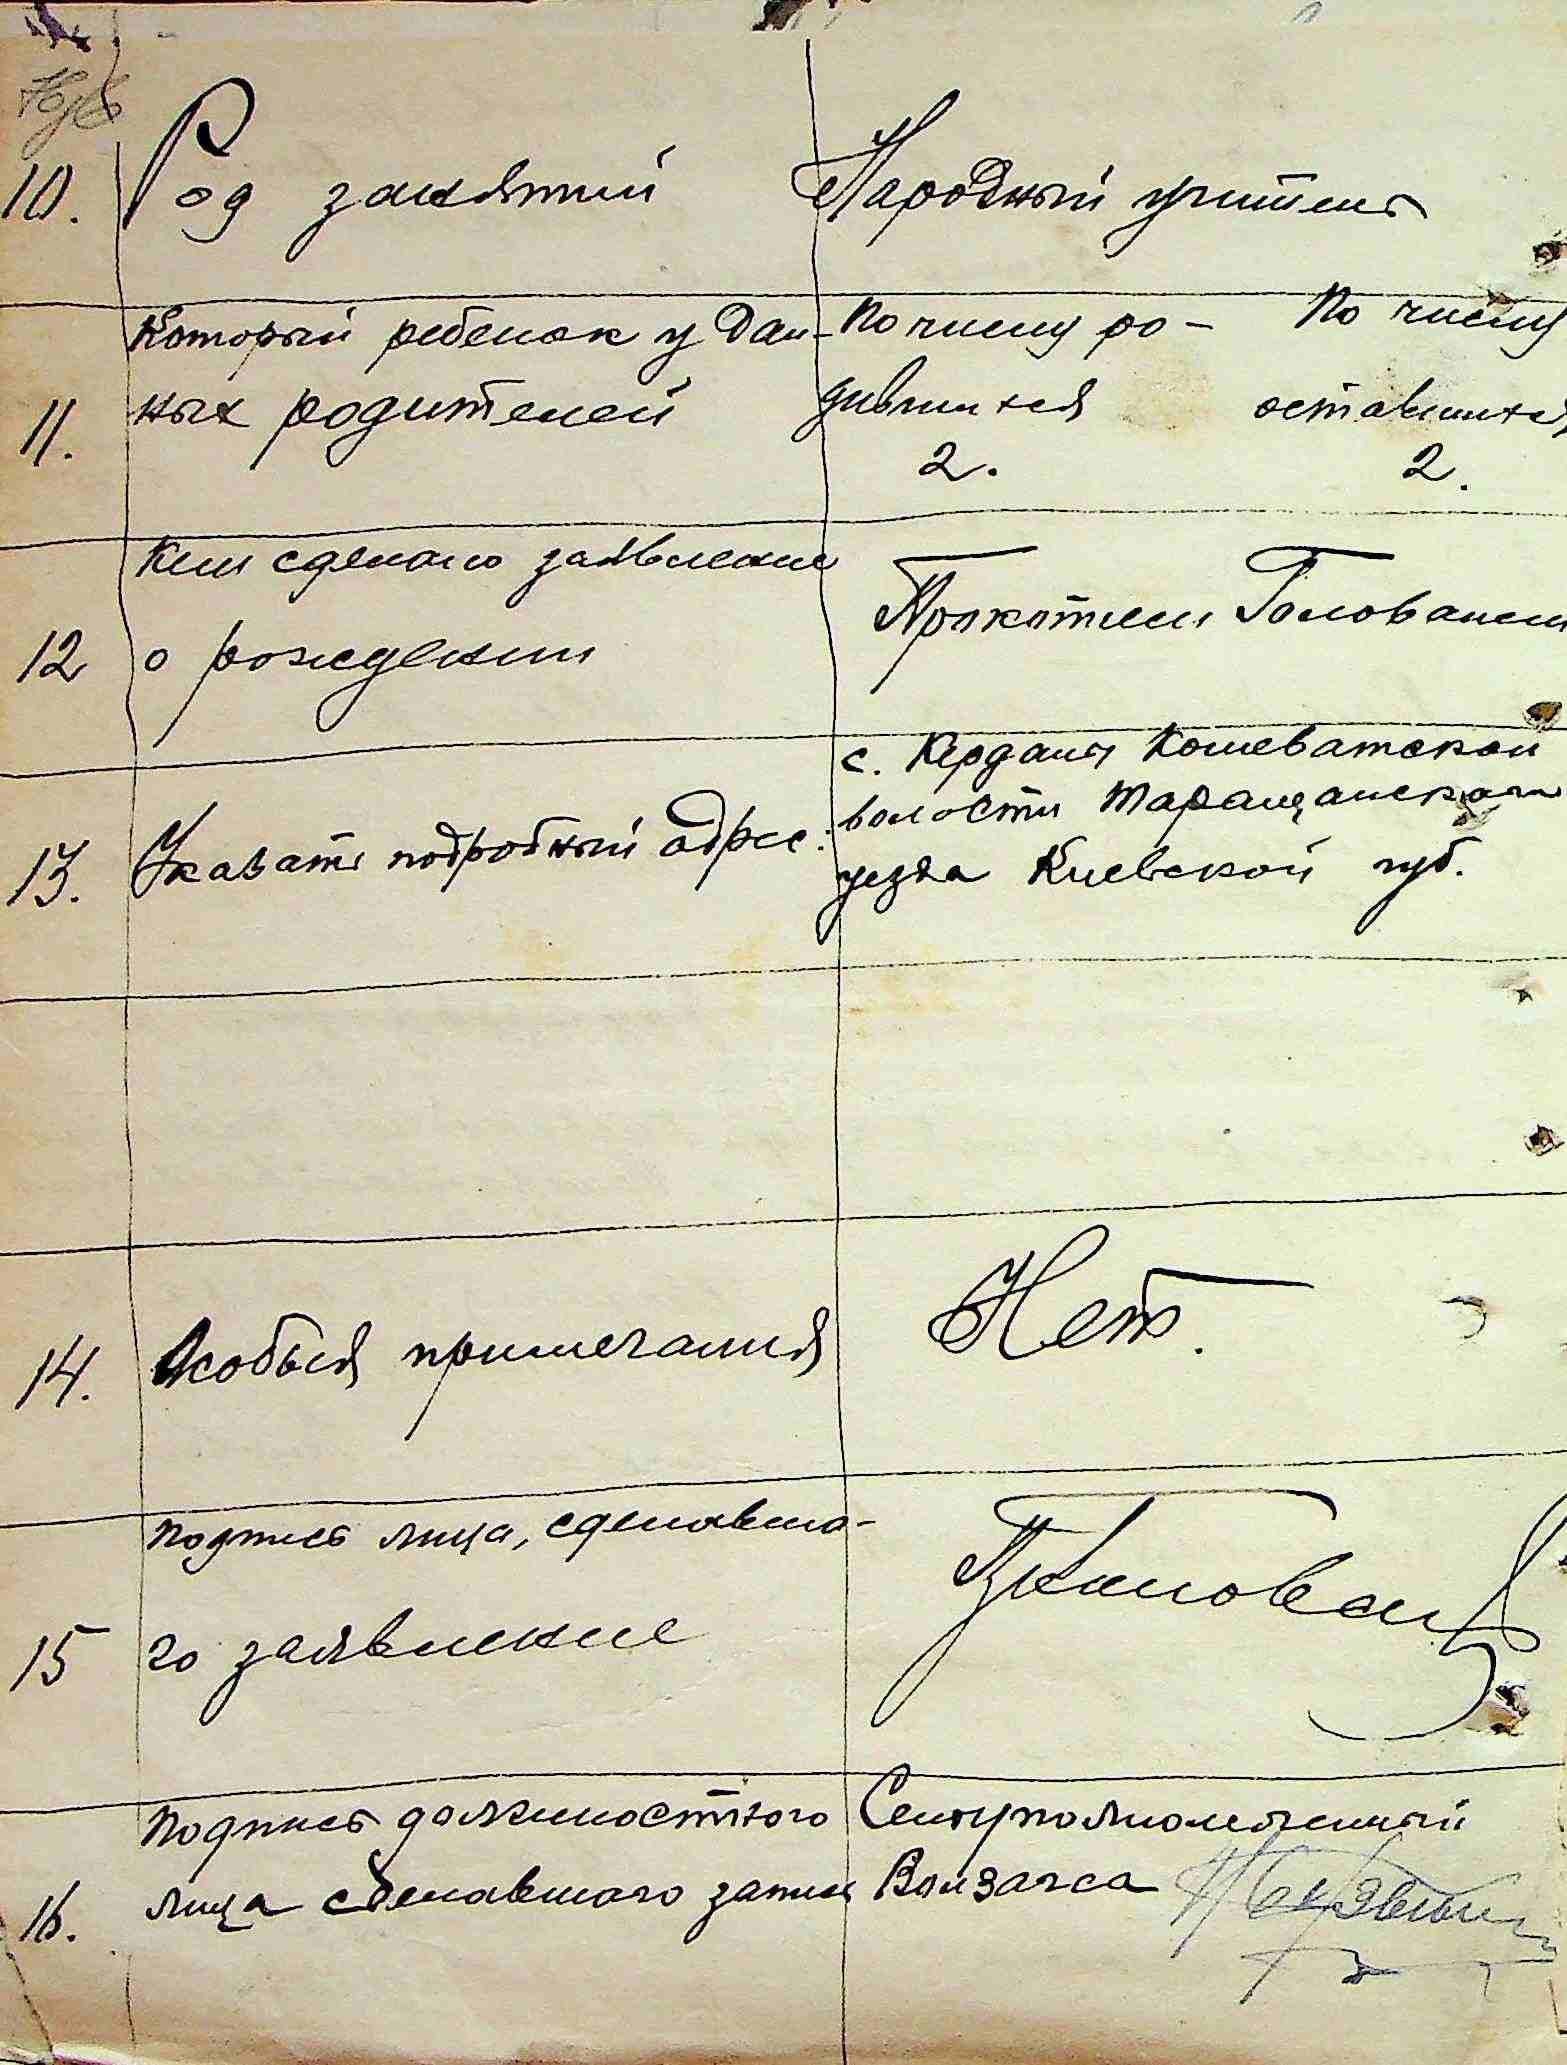 10. Род занятий Народный учитель
Который ребенок у дан- По числу ро- По числу
11. ных родителей дившихся оставшихся
2. 2.
Кем сделано заявление
12 о рождении Прокопием Голованем
с. Кердана Кошеватской
волости Таращанского
13. Указать подробный адрес: уезда Киевской губ.
14. Особыя примечания Нет.
Подпись лица, сделавша-
15 го заявление
Подпись должностного
16. лица сделавшего запись Волзагса